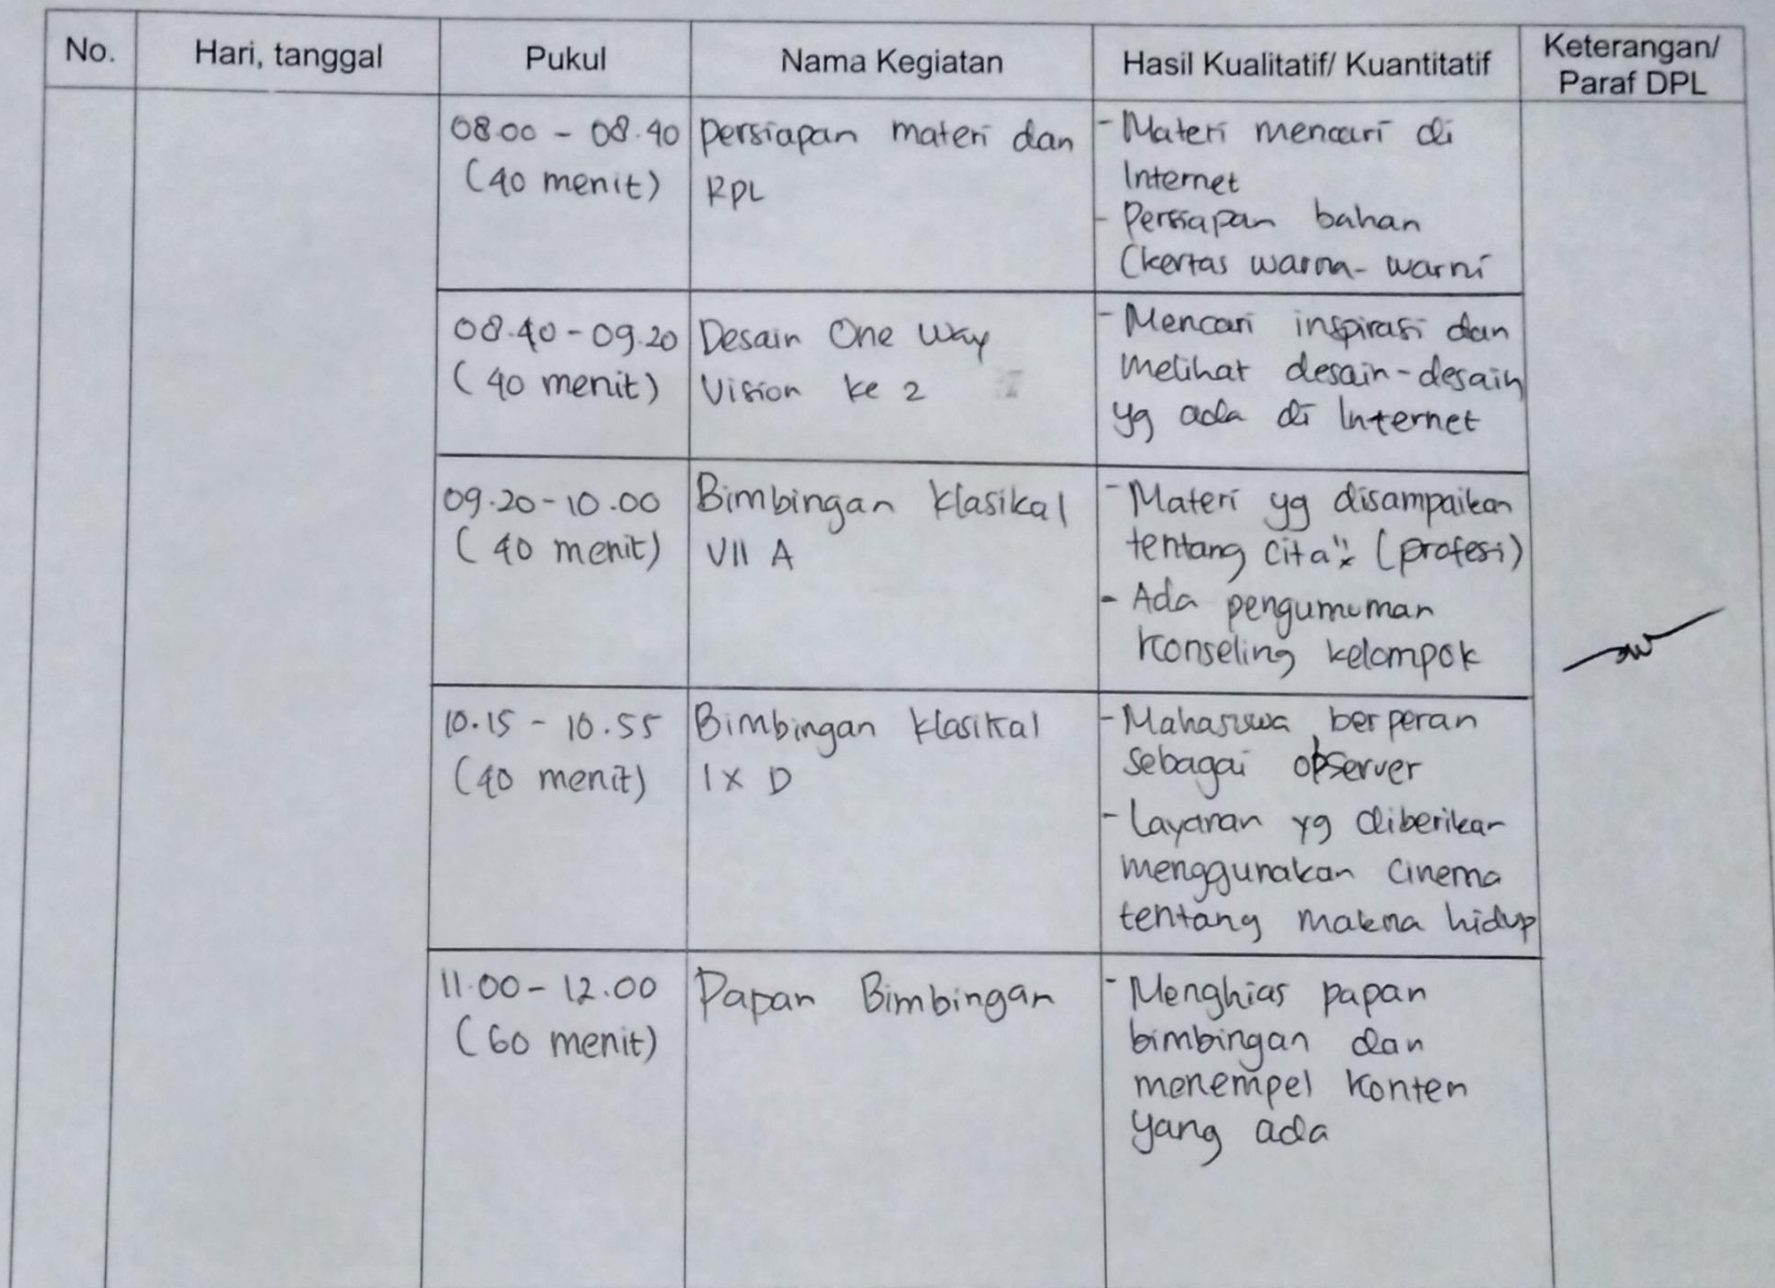 No.
Hari, tanggal
Pukul
Nama Kegiatan
Hasil Kualitatif/ Kuantitatif
Keterangan/
Paraf DPL
08.00 - 08.40
(40 menit)
persiapan materi dan
RPL
- Materi mencari di
Internet
- Persiapan bahan
(kertas warna-warni
08.40 - 09.20
(40 menit)
Desain One Way
Vision ke 2
- Mencari inspirasi dan
melihat desain-desain
yg ada di Internet
09.20 - 10.00
(40 menit)
Bimbingan klasikal
VII A
- Materi yg disampaikan
tentang cita" (profesi)
- Ada pengumuman
konseling kelompok
10.15 - 10.55
(40 menit)
Bimbingan klasikal
IX D
- Mahasiswa berperan
sebagai observer
- Layanan yg diberikan
menggunakan cinema
tentang makna hidup
11.00 - 12.00
(60 menit)
Papan Bimbingan
- Menghias papan
bimbingan dan
menempel konten
yang ada